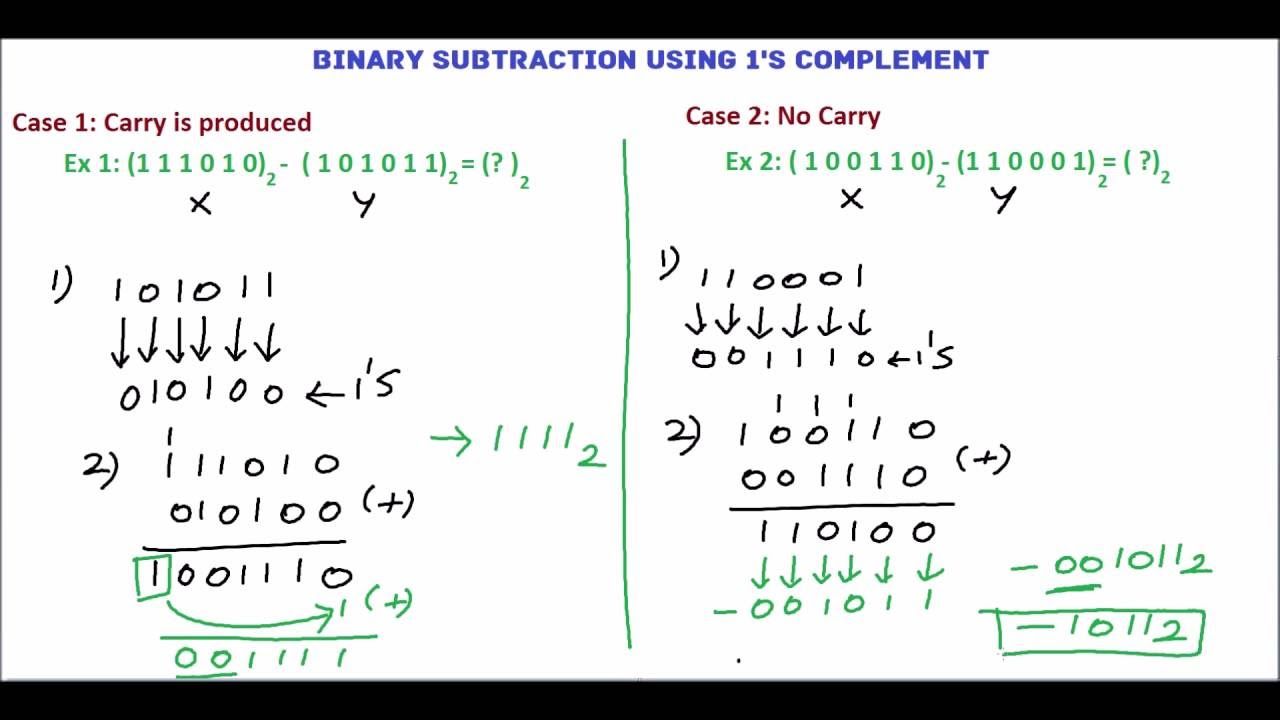 BINARY SUBTRACTION USING 1'S COMPLEMENT
Case 1: Carry is produced
Ex 1: (1 1 1 0 1 0)2 - ( 1 0 1 0 1 1)2 = (? )2
X Y
1) 1 0 1 0 1 1
0 1 0 1 0 0 ← 1'S
1
2) 1 1 1 0 1 0
0 1 0 1 0 0 (+)
1 0 0 1 1 1 0
1 (+)
0 0 1 1 1 1
→ 1 1 1 1 2
Case 2: No Carry
Ex 2: ( 1 0 0 1 1 0)2 - (1 1 0 0 0 1)2 = ( ?)2
X Y
1) 1 1 0 0 0 1
0 0 1 1 1 0 ← 1'S
1 1 1
2) 1 0 0 1 1 0
0 0 1 1 1 0 (+)
1 1 0 1 0 0
- 0 0 1 0 1 1
- 0 0 1 0 1 1 2
- 1 0 1 1 2